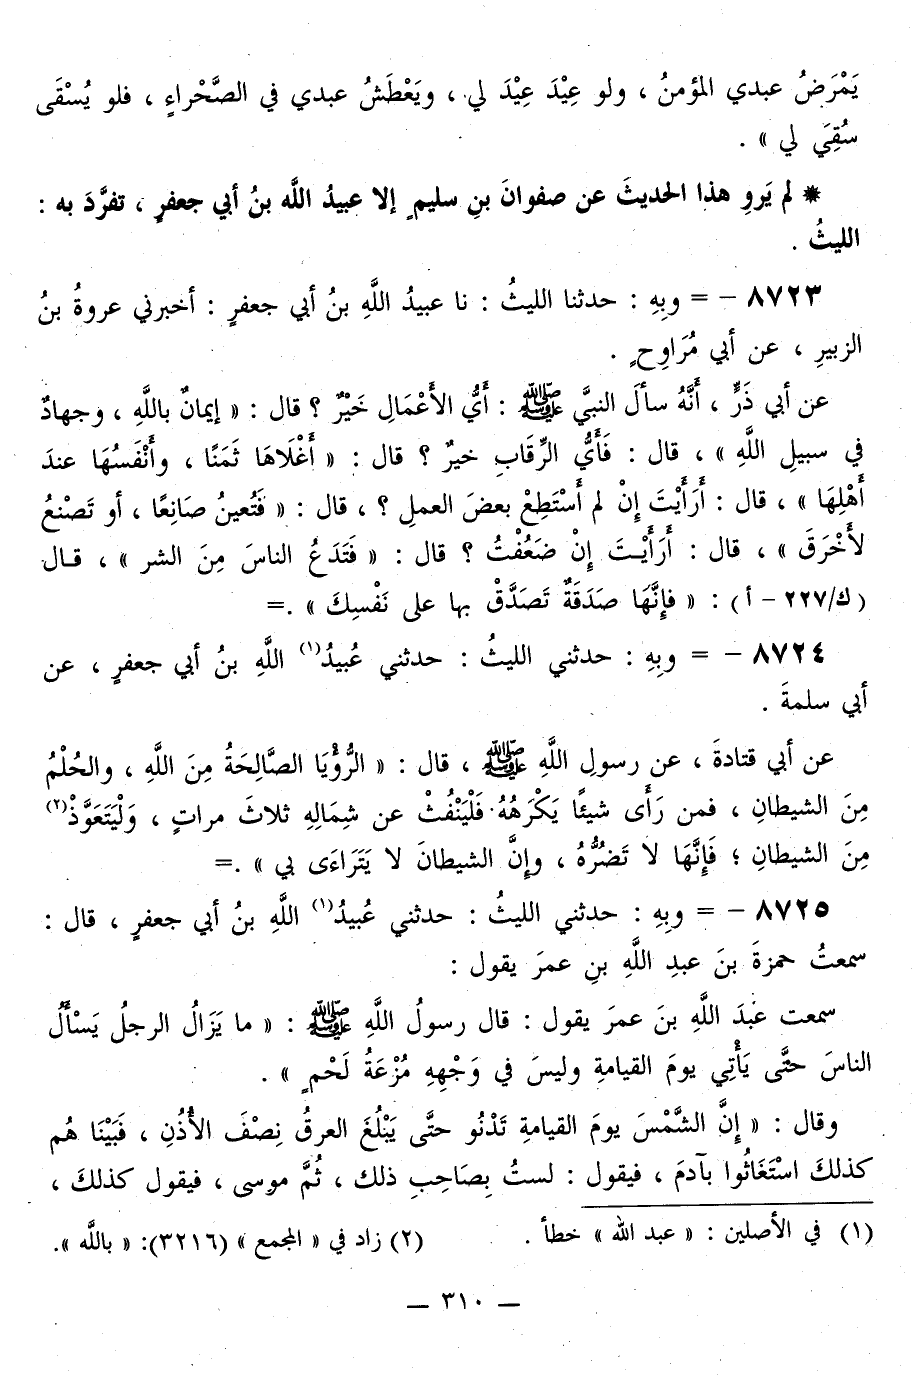 يَمْرَضُ عبدي المؤمنُ ، ولو عِيْدَ عِيْدَ لي ، ويَعْطَشُ عبدي في الصَّحْراءِ ، فلو يُسْقَى
سُقِيَ لي » .
* لم يَروِ هذا الحديثَ عن صفوانَ بنِ سليمٍ إلا عبيدُ اللَّه بنُ أبي جعفرٍ ، تفرَّدَ به :
الليثُ .
٨٧٢٣ – = وبِهِ : حدثنا الليثُ : نا عبيدُ اللَّهِ بنُ أبي جعفرٍ : أخبرني عروةُ بنُ
الزبيرِ ، عن أبي مُرَاوِحٍ .
عن أبي ذَرٍّ ، أَنَّهُ سألَ النبيَّ ﷺ : أَيُّ الأَعْمَالِ خَيْرٌ ؟ قال : « إيمانٌ باللَّهِ ، وجهادٌ
في سبيلِ اللَّهِ » ، قال : فَأَيُّ الرِّقَابِ خيرٌ ؟ قال : « أَغْلَاهَا ثَمَنًا ، وأَنْفَسُهَا عندَ
أَهْلِهَا » ، قال : أَرَأَيْتَ إِنْ لم أَسْتَطِعْ بعضَ العملِ ؟ ، قال : « فَتُعينُ صَانِعًا ، أو تَصْنَعُ
لأَخْرَقَ » ، قال : أَرَأَيْتَ إِنْ ضَعُفْتُ ؟ قال : « فَتَدَعُ الناسَ مِنَ الشر » ، قـال
( ك/٢٢٧ – أ ) : « فإِنَّهَا صَدَقَةٌ تَصَدَّقْ بها على نَفْسِكَ » .=
٨٧٢٤ – = وبِهِ : حدثني الليثُ : حدثني عُبيدُ(١) اللَّهِ بنُ أبي جعفرٍ ، عن
أبي سلمةَ .
عن أبي قتادةَ ، عن رسولِ اللَّهِ ﷺ ، قال : « الرُّؤْيَا الصَّالِحَةُ مِنَ اللَّهِ ، والحُلْمُ
مِنَ الشيطانِ ، فمن رَأَى شيئًا يَكْرَهُهُ فَلْيَنْفُثْ عن شِمَالِهِ ثلاثَ مراتٍ ، وَلْيَتَعَوَّذْ(٢)
مِنَ الشيطانِ ؛ فَإِنَّهَا لا تَضُرُّهُ ، وإِنَّ الشيطانَ لا يَتَرَاءَى بي » .=
٨٧٢٥ – = وبِهِ : حدثني الليثُ : حدثني عُبيدُ(١) اللَّهِ بنُ أبي جعفرٍ ، قال :
سمعتُ حمزةَ بنَ عبدِ اللَّهِ بنِ عمرَ يقول :
سمعت عبْدَ اللَّهِ بنَ عمرَ يقول : قال رسولُ اللَّهِ ﷺ : « ما يَزَالُ الرجلُ يَسْأَلُ
الناسَ حتَّى يَأْتِي يومَ القيامةِ وليسَ في وَجْهِهِ مُزْعَةُ لَحْمٍ » .
وقال : « إنَّ الشَّمْسَ يومَ القيامةِ تَدْنُو حتَّى يَبْلُغَ العرقُ نِصْفَ الأُذُنِ ، فَبَيْنَا هُم
كذلكَ اسْتَغَاثُوا بآدمَ ، فيقول : لستُ بِصَاحِبِ ذلك ، ثُمَّ موسى ، فيقول كذلكَ ،
(١) في الأصلين : « عبد الله » خطأ . (٢) زاد في « المجمع » (٣٢١٦): « باللَّه ».
— ٣١٠ —